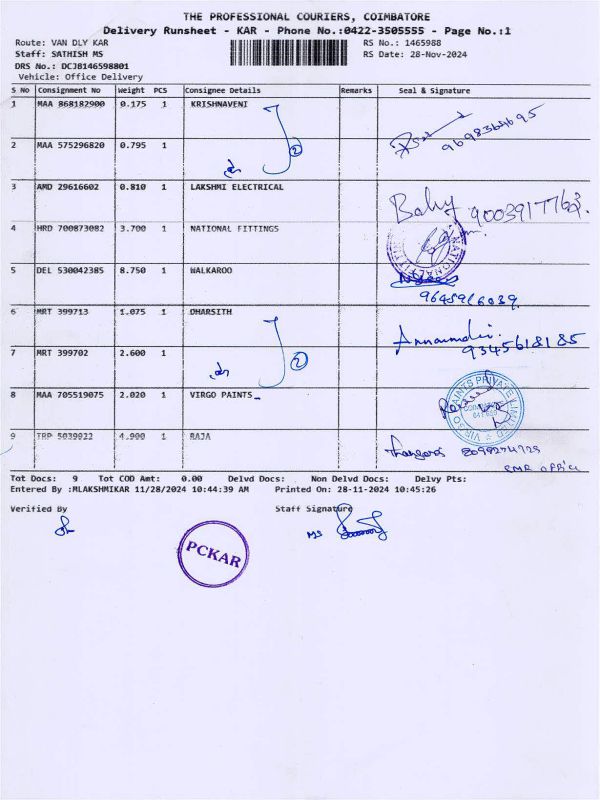 THE PROFESSIONAL COURIERS, COIMBATORE
Delivery Runsheet - KAR - Phone No.:0422-3505555 - Page No.:1
Route: VAN DLY KAR RS No.: 1465988
Staff: SATHISH MS RS Date: 28-Nov-2024
DRS No.: DCJ8146598801
Vehicle: Office Delivery
S No Consignment No Weight PCS Consignee Details Remarks Seal & Signature
1 MAA 868182900 0.175 1 KRISHNAVENI
9698364695
2 MAA 575296820 0.795 1 2
3 AMD 29616602 0.810 1 LAKSHMI ELECTRICAL
Baby 9003917763
4 HRD 700873082 3.700 1 NATIONAL FITTINGS
5 DEL 530042385 8.750 1 WALKAROO
9645916039
6 MRT 399713 1.075 1 DHARSITH
9345618185
7 MRT 399702 2.600 1 2
8 MAA 705519075 2.020 1 VIRGO PAINTS
VIRGO PAINTS PRIVATE LIMITED
9 TRP 5039922 4.900 1 RAJA
Tot Docs: 9 Tot COD Amt: 0.00 Delvd Docs: Non Delvd Docs: Delvy Pts:
Entered By :MLAKSHMIKAR 11/28/2024 10:44:39 AM Printed On: 28-11-2024 10:45:26
Verified By Staff Signature
MS
PCKAR